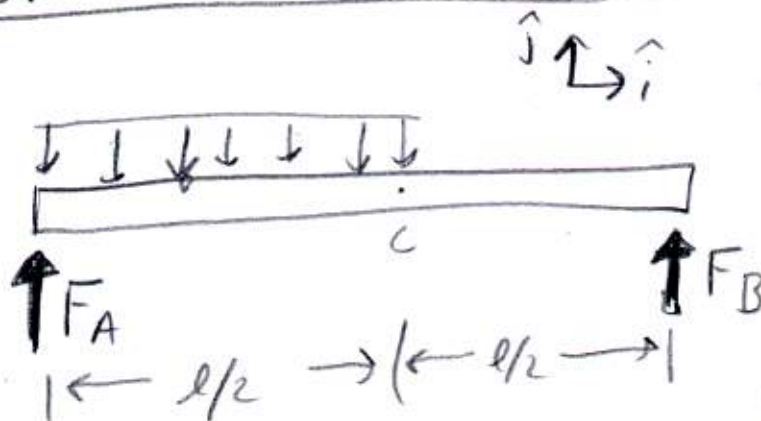 ĵ î
C
F_A F_B
l/2 l/2